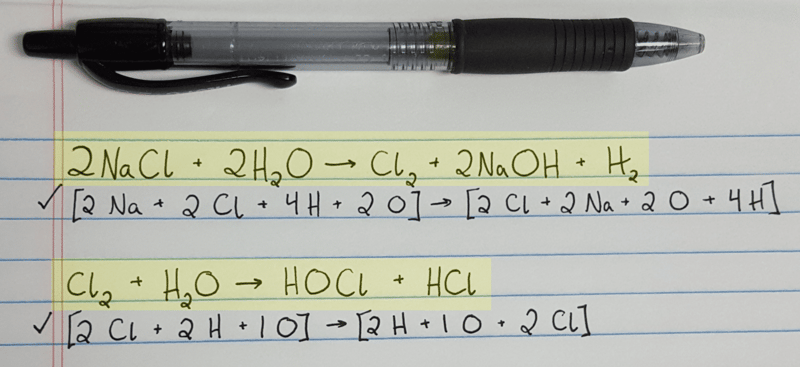 2NaCl + 2H₂O → Cl₂ + 2NaOH + H₂
✓ [2 Na + 2 Cl + 4H + 2 O] → [2 Cl + 2 Na + 2 O + 4H]
Cl₂ + H₂O → HOCl + HCl
✓ [2 Cl + 2 H + 1 O] → [2 H + 1 O + 2 Cl]